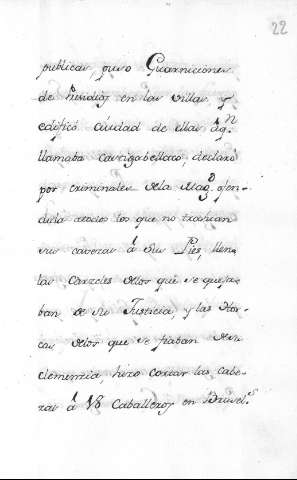 22
publicas, puso Guarniciones
de Presidios en las villas y
edificó ciudad de ellas âq.n
llamaba castigabellaco, declaró
por criminales dela Mag.d ofen-
dida atodos los que no trahian
sus cavezas á sus Pies, llenó
las Carzeles delos que se queja-
ban de su Justicia, y las Hor-
cas delos que se fiaban desu
clemenzia, hizo cortar las cabe-
zas á 18 Caballeros en Brusel.s